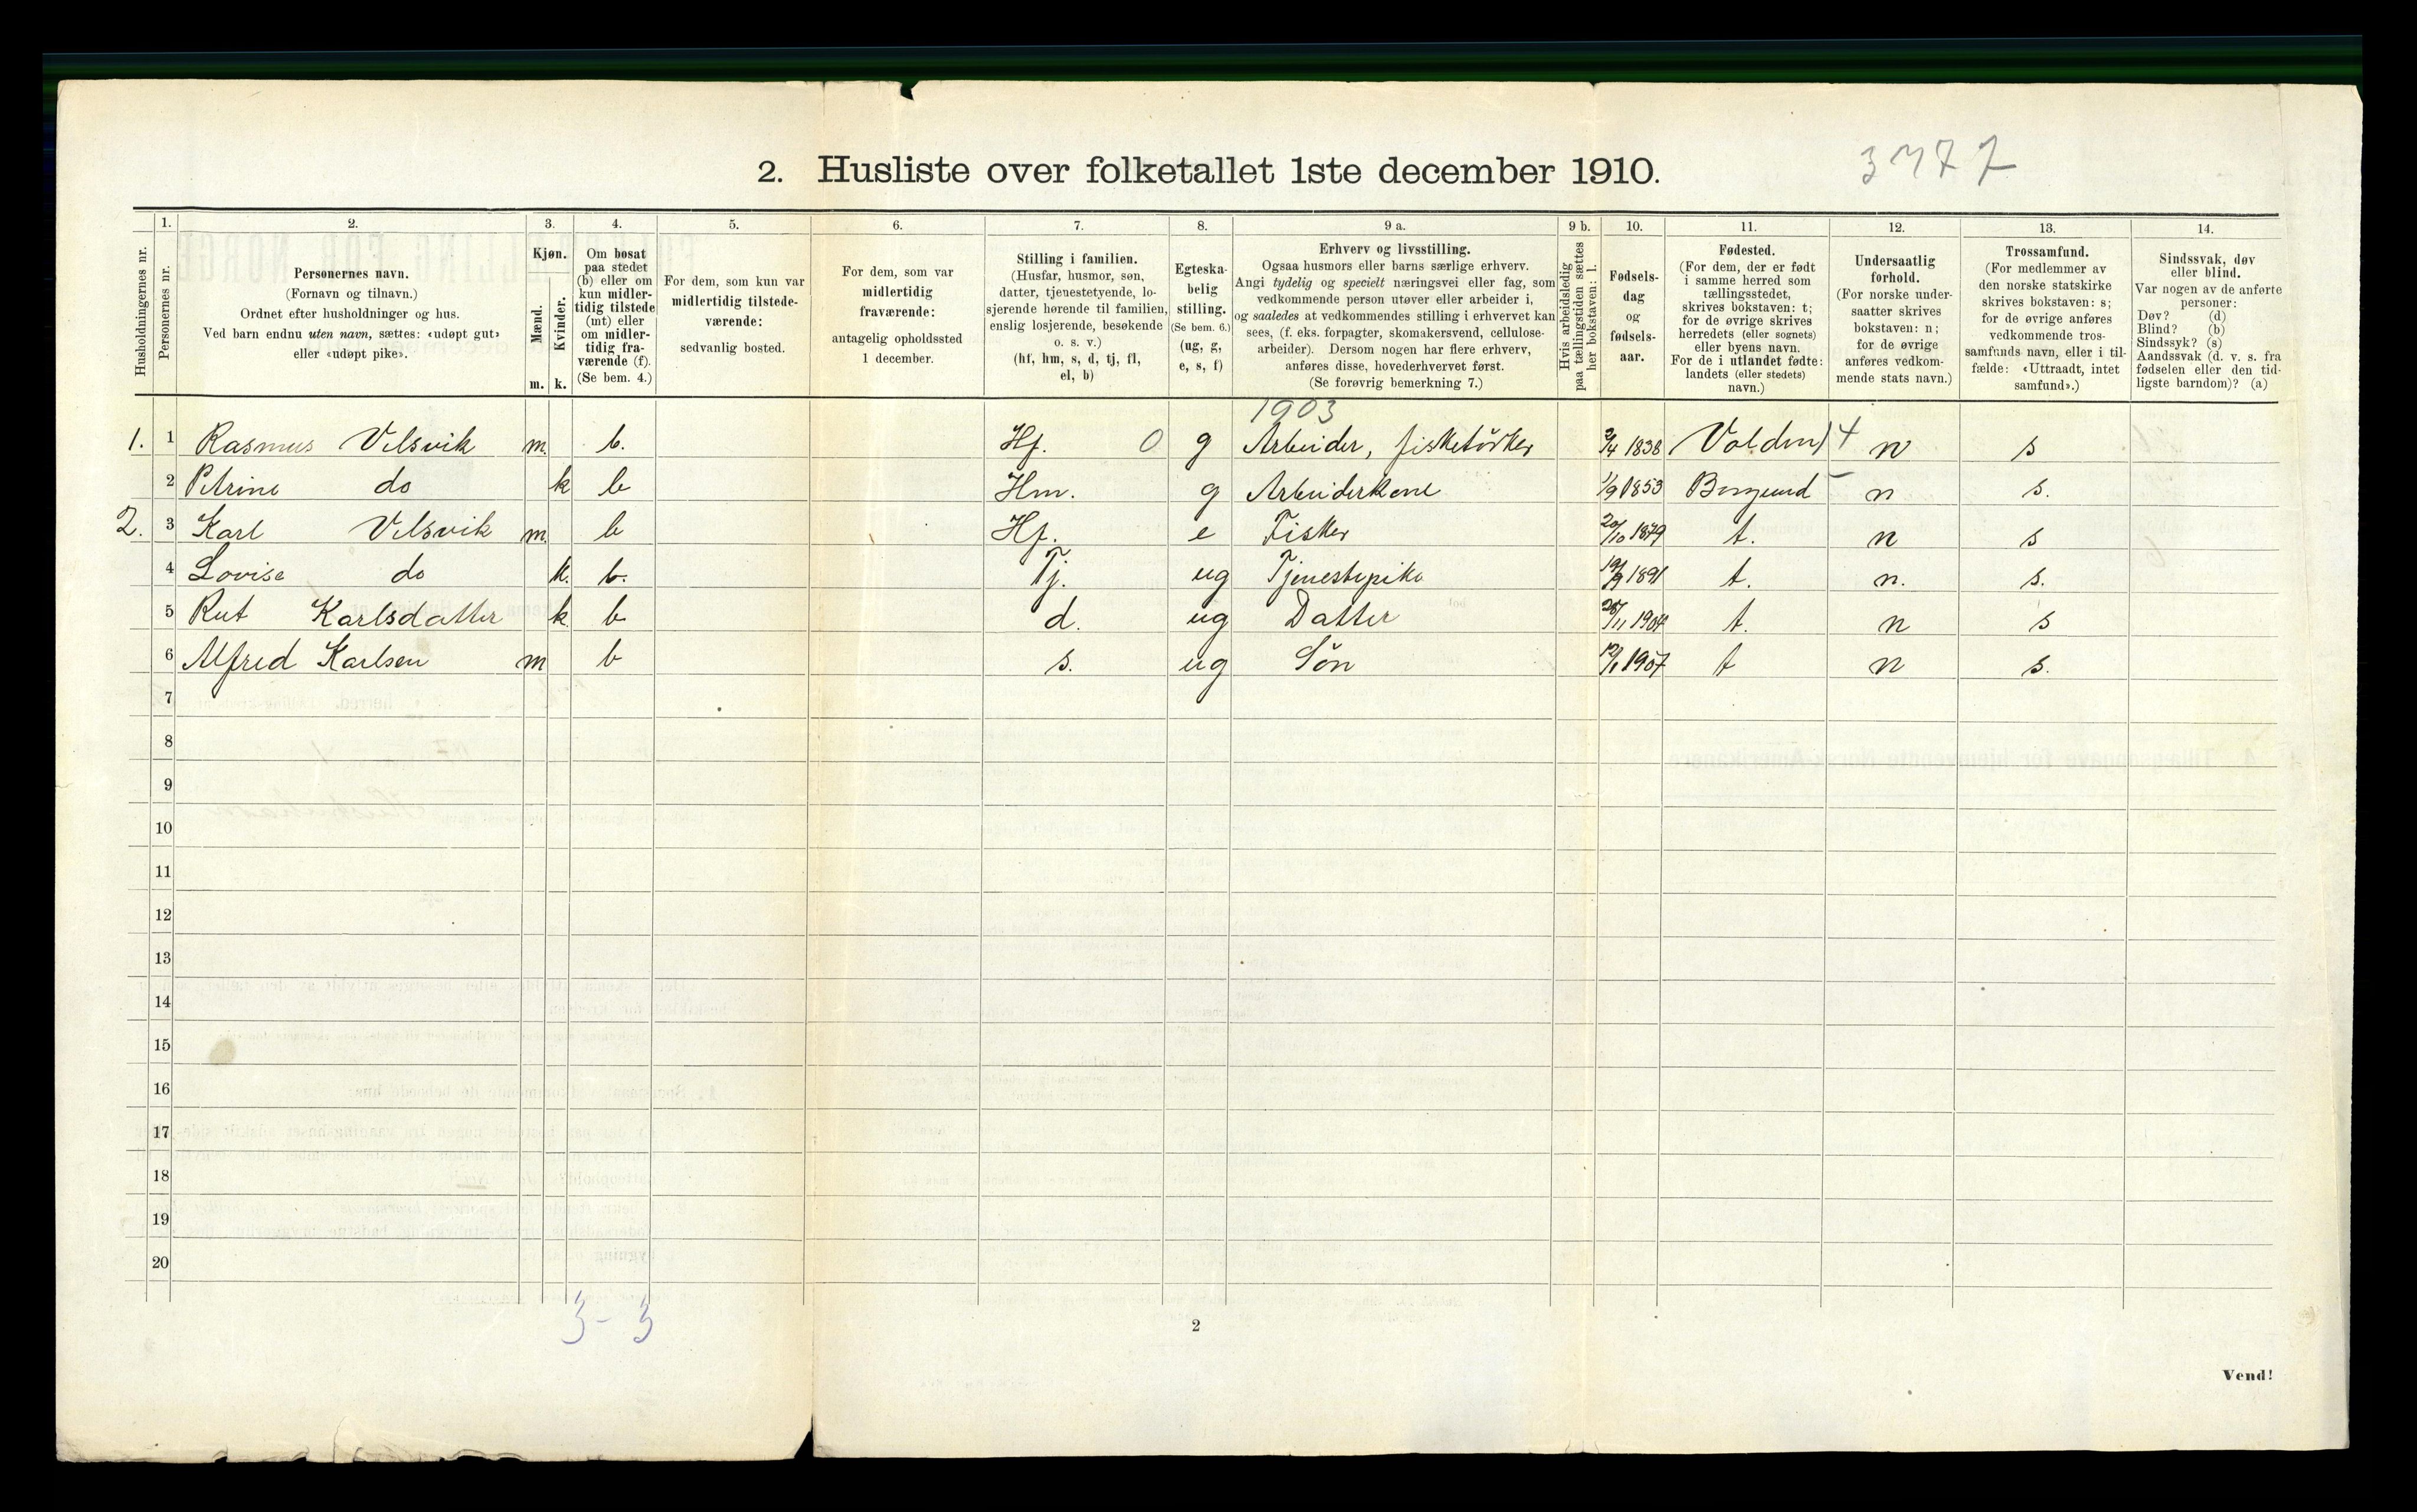 3777
2. Husliste over folketallet 1ste december 1910.
Husholdningernes nr.
1.
Personernes nr.
2.
Personernes navn.
(Fornavn og tilnavn.)
Ordnet efter husholdninger og hus.
Ved barn endnu uten navn, sættes: «udøpt gut»
eller «udøpt pike».
3.
Kjøn.
Mænd.
Kvinder.
m. k.
4.
Om bosat
paa stedet
(b) eller om
kun midler-
tidig tilstede
(mt) eller
om midler-
tidig fra-
værende (f).
(Se bem. 4.)
5.
For dem, som kun var
midlertidig tilstede-
værende:
sedvanlig bosted.
6.
For dem, som var
midlertidig
fraværende:
antagelig opholdssted
1 december.
7.
Stilling i familien.
(Husfar, husmor, søn,
datter, tjenestetyende, lo-
sjerende hørende til familien,
enslig losjerende, besøkende
o. s. v.)
(hf, hm, s, d, tj, fl,
el, b)
8.
Egteska-
belig
stilling.
(Se bem. 6.)
(ug, g,
e, s, f)
9 a.
Erhverv og livsstilling.
Ogsaa husmors eller barns særlige erhverv.
Angi tydelig og specielt næringsvei eller fag, som
vedkommende person utøver eller arbeider i,
og saaledes at vedkommendes stilling i erhvervet kan
sees, (f. eks. forpagter, skomakersvend, cellulose-
arbeider). Dersom nogen har flere erhverv,
anføres disse, hovederhvervet først.
(Se forøvrig bemerkning 7.)
9 b.
Hvis arbeidsledig
paa tællingstiden sættes
her bokstaven: l.
10.
Fødsels-
dag
og
fødsels-
aar.
11.
Fødested.
(For dem, der er født
i samme herred som
tællingsstedet,
skrives bokstaven: t;
for de øvrige skrives
herredets (eller sognets)
eller byens navn.
For de i utlandet fødte:
landets (eller stedets)
navn.)
12.
Undersaatlig
forhold.
(For norske under-
saatter skrives
bokstaven: n;
for de øvrige
anføres vedkom-
mende stats navn.)
13.
Trossamfund.
(For medlemmer av
den norske statskirke
skrives bokstaven: s;
for de øvrige anføres
vedkommende tros-
samfunds navn, eller i til-
fælde: «Uttraadt, intet
samfund».)
14.
Sindssvak, døv
eller blind.
Var nogen av de anførte
personer:
Døv? (d)
Blind? (b)
Sindssyk? (s)
Aandssvak (d. v. s. fra
fødselen eller den tid-
ligste barndom)? (a)
1903
1. 1 Rasmus Velsvik m. b. Hf. 0 g Arbeider, fisketörker 2/4 1838 Volden 4 n s
2 Petrine do k b Hm. g Arbeiderkone 1/9 1853 Borgund n s.
2. 3 Karl Velsvik m. b Hf. e Fisker 20/10 1879 t. n s
4 Lovise do k. b. Tj. ug Tjenestepike 1891 t. n. s.
5 Rut Karlsdatter k b d. ug Datter 1904 t. n s
6 Alfred Karlsen m b s. ug Sön 1907 t n s.
7
8
9
10
11
12
13
14
15
16
17
18
19
20
3 - 3
2
Vend!